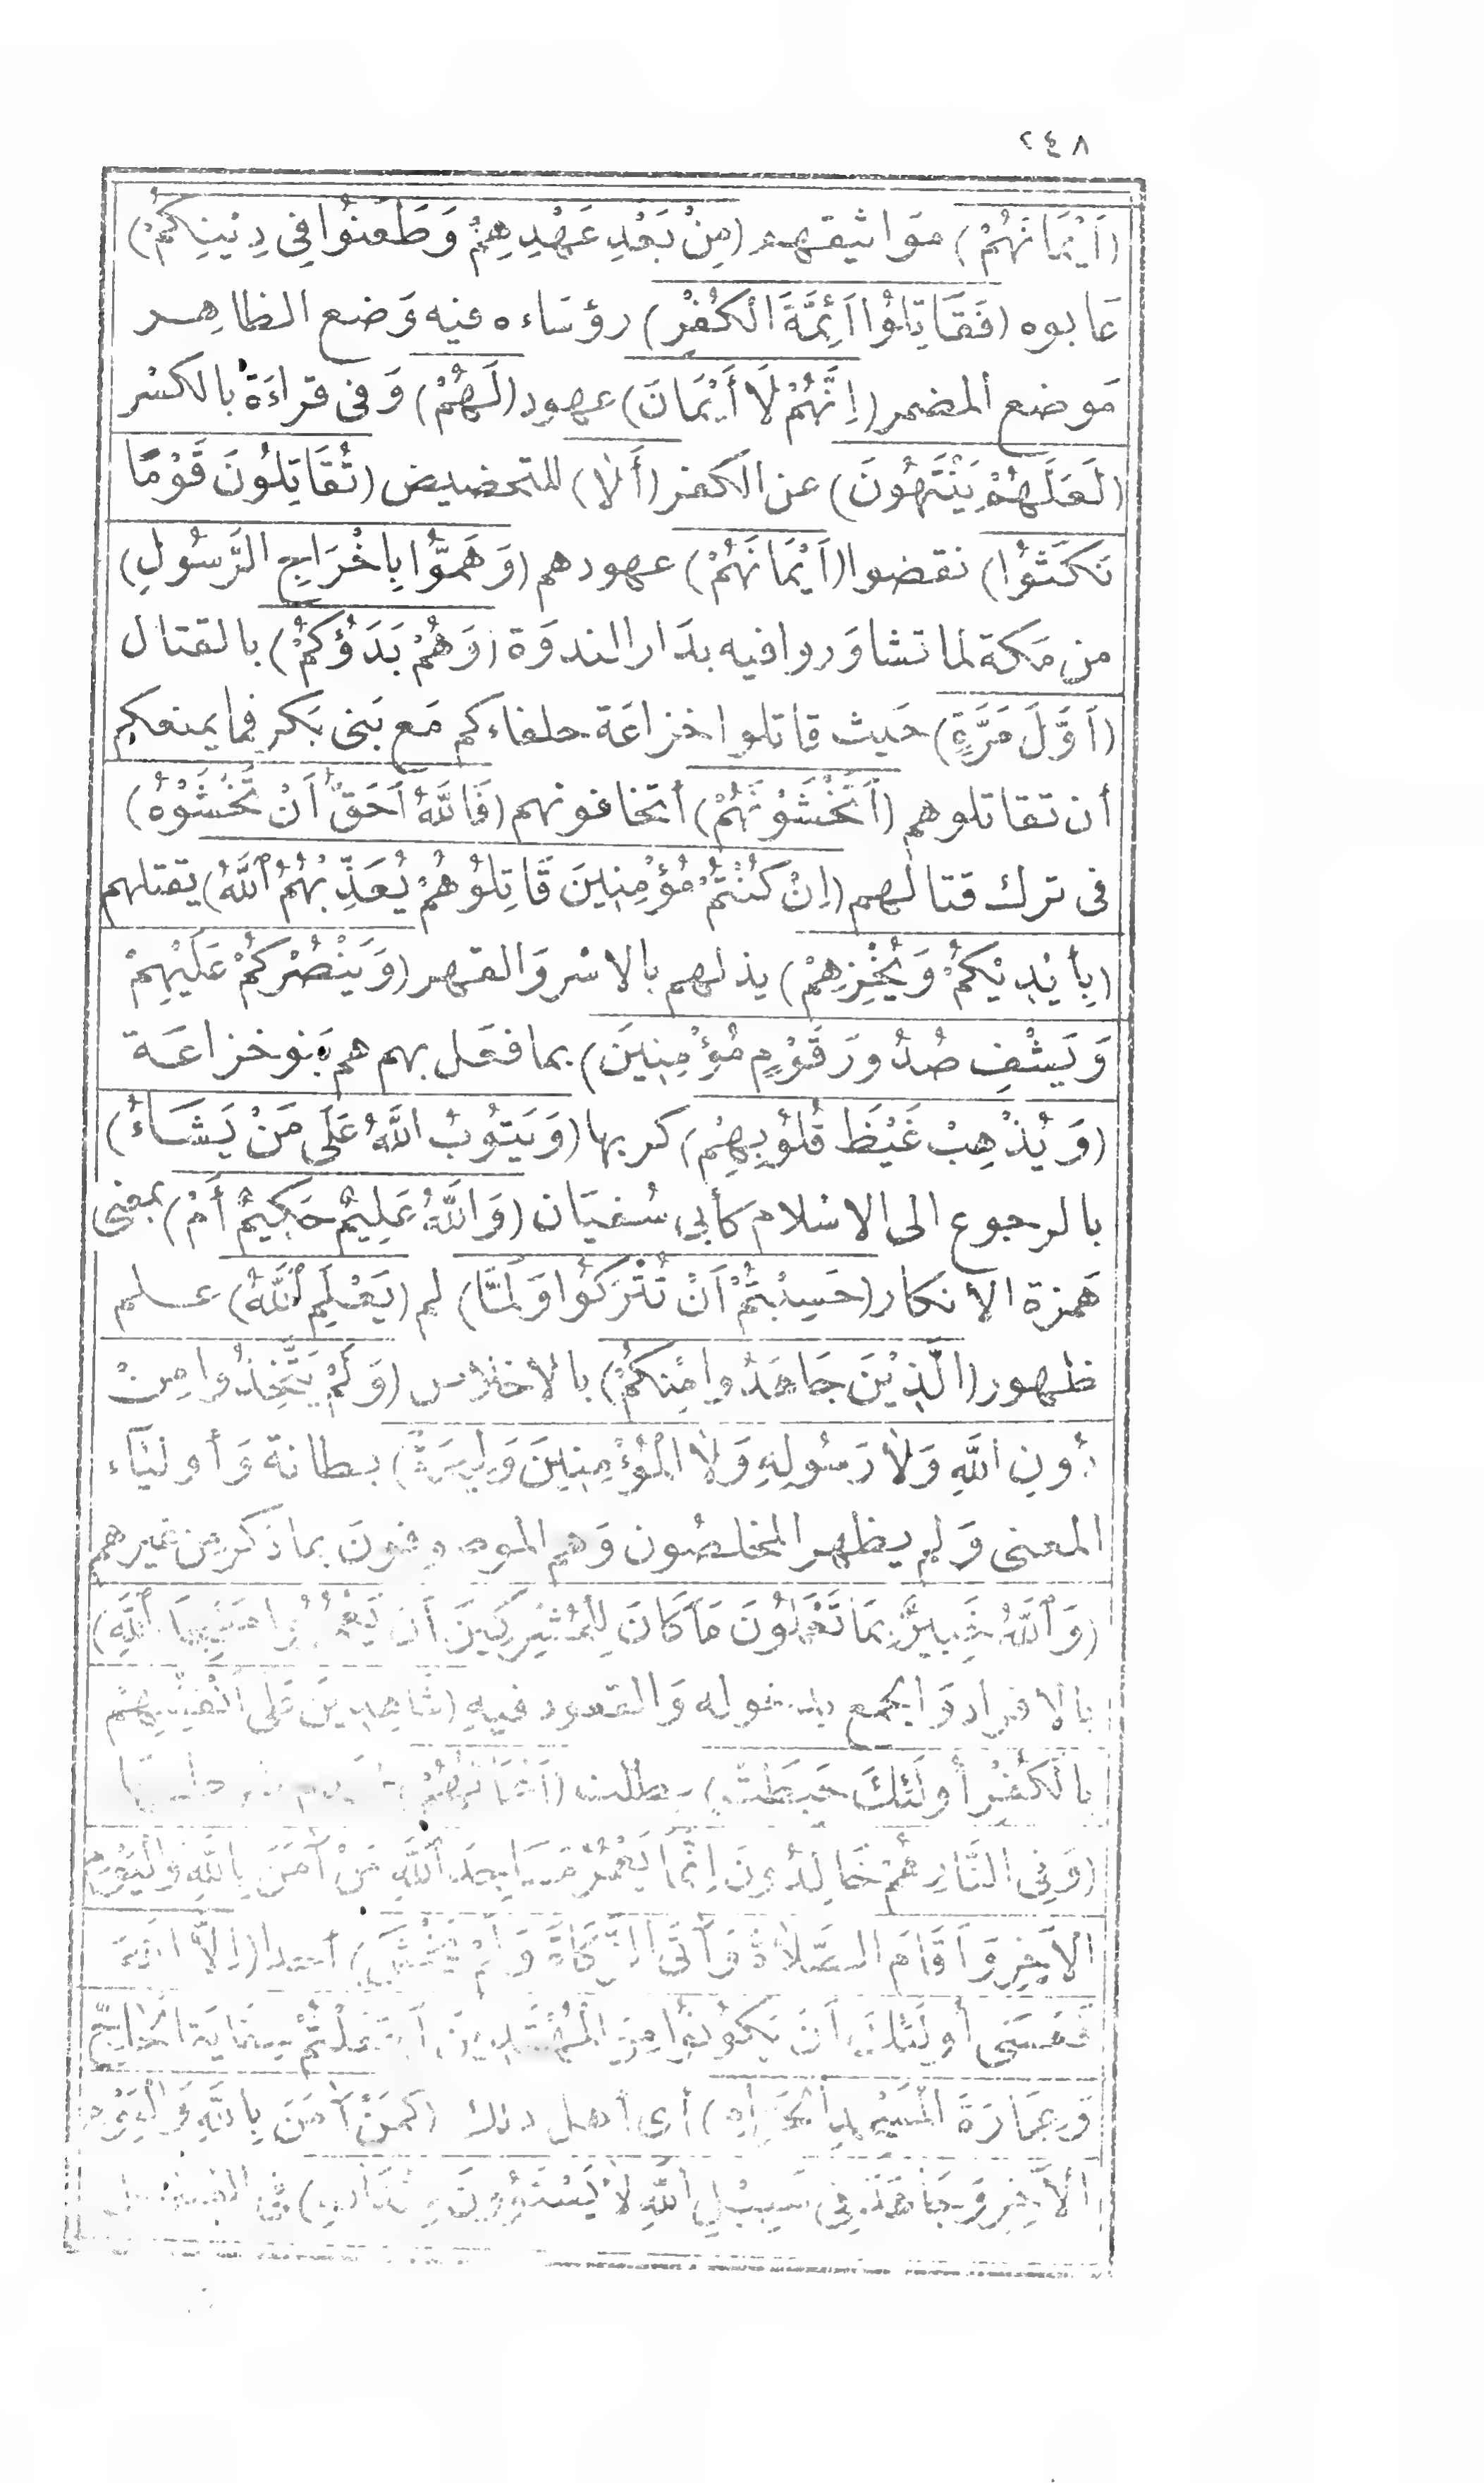 ٢٤٨
(اَيْمَانَهُمْ) مَوَاثيقهم (مِنْ بَعْدِ عَهْدِهِمْ وَطَعَنُوا فِى دِيْنِكُمْ)
عَابوه (فَقَاتِلُوْا اَئِمَّةَ الْكُفْرِ) رؤسَاءه فيه وَضع الظاهِر
مَوضع المضمر (اِنَّهُمْ لَا أَيْمَانَ) عهود (لَهُمْ) وَفى قراءَة بالكسْر
(لَعَلَّهُمْ يَنْتَهُونَ) عن الكفر (أَلَا) للتحضيض (تُقَاتِلُونَ قَوْمًا
نَكَثُوْا) نقضوا (اَيْمَانَهُمْ) عهودهم (وَهَمُّوْا بِاِخْرَاجِ الرَّسُولِ)
من مَكة لما تشاوَروا فيه بدَار الندوَة (وَهُمْ بَدَؤُكُمْ) بالقتال
(اَوَّلَ مَرَّةٍ) حَيث قاتلوا خزاعَة حلفاءكم مَع بَنى بَكر فما يمنعكم
أن تقاتلوهم (اَتَخْشَوْنَهُمْ) أتخافونهم (فَاللَّهُ اَحَقُّ اَنْ تَخْشَوْهُ)
فى ترك قتالهم (اِنْ كُنْتُمْ مُؤْمِنِينَ قَاتِلُوْهُمْ يُعَذِّبْهُمُ اللَّهُ) يقتلهم
(بِأَيْدِيْكُمْ وَيُخْزِهِمْ) يذلهم بالاسْر وَالقهر (وَيَنْصُرْكُمْ عَلَيْهِمْ
وَيَشْفِ صُدُورَ قَوْمٍ مُؤْمِنِينَ) بما فعَل بهم هم بَنو خزاعَة
(وَيُذْهِبْ غَيْظَ قُلُوْبِهِمْ) كربها (وَيَتُوْبُ اللَّهُ عَلَى مَنْ يَشَاءُ)
بالرجوع الى الاسْلام كأبى سُفيَان (وَاللَّهُ عَلِيمٌ حَكِيمٌ أَمْ) بمعنى
هَمزة الانكار (حَسِبْتُمْ اَنْ تُتْرَكُوْا وَلَمَّا) لم (يَعْلَمِ اللَّهُ) علم
ظهور (الَّذِيْنَ جَاهَدُوا مِنْكُمْ) بالاخلاص (وَلَمْ يَتَّخِذُوا مِنْ
دُونِ اللَّهِ وَلَا رَسُولِهِ وَلَا الْمُؤْمِنِينَ وَلِيجَةً) بطانة وَأوليَاء
المعنى وَلم يظهر المخلصُون وَهم الموصوفونَ بما ذكر من غيرهم
(وَاللَّهُ خَبِيرٌ بِمَا تَعْمَلُونَ مَا كَانَ لِلْمُشْرِكِيْنَ أَنْ يَعْمُرُوا مَسَٰجِدَ اللَّهِ)
بالافراد وَالجمع بدخوله وَالقعود فيهِ (شَاهِدِيْنَ عَلى اَنْفُسِهِمْ
بِالْكُفْرِ أُولَئِكَ حَبِطَتْ) بطلت (اَعْمَالُهُمْ)
(وَفِى النَّارِ هُمْ خَالِدُونَ اِنَّمَا يَعْمُرُ مَسَاجِدَ اللَّهِ مَنْ آمَنَ بِاللَّهِ وَالْيَوْمِ
الْآخِرِ وَاَقَامَ الصَّلَاةَ وَآتَى الزَّكَاةَ وَلَمْ يَخْشَ) أحدا (اِلَّا اللَّهَ
فَعَسَى أُولَئِكَ اَنْ يَكُوْنُوْا مِنَ الْمُهْتَدِينَ اَجَعَلْتُمْ سِقَايَةَ الْحَاجِّ
وَعِمَارَةَ الْمَسْجِدِ الْحَرَامِ) أى أهل ذلك (كَمَنْ آمَنَ بِاللَّهِ وَالْيَوْمِ
الْآخِرِ وَجَاهَدَ فِى سَبِيْلِ اللَّهِ لَا يَسْتَوُوْنَ عِنْدَ اللَّهِ) فى الفضل